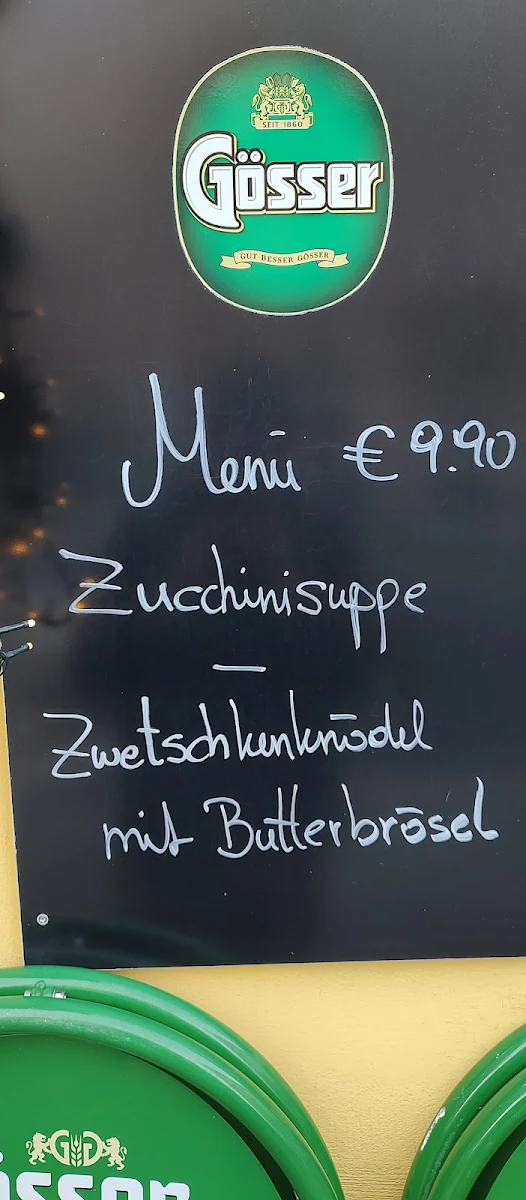 SEIT 1860
Gösser
GUT BESSER GÖSSER
Menü € 9.90
Zucchinisuppe
—
Zwetschkenknödel
mit Butterbrösel
GG
össer